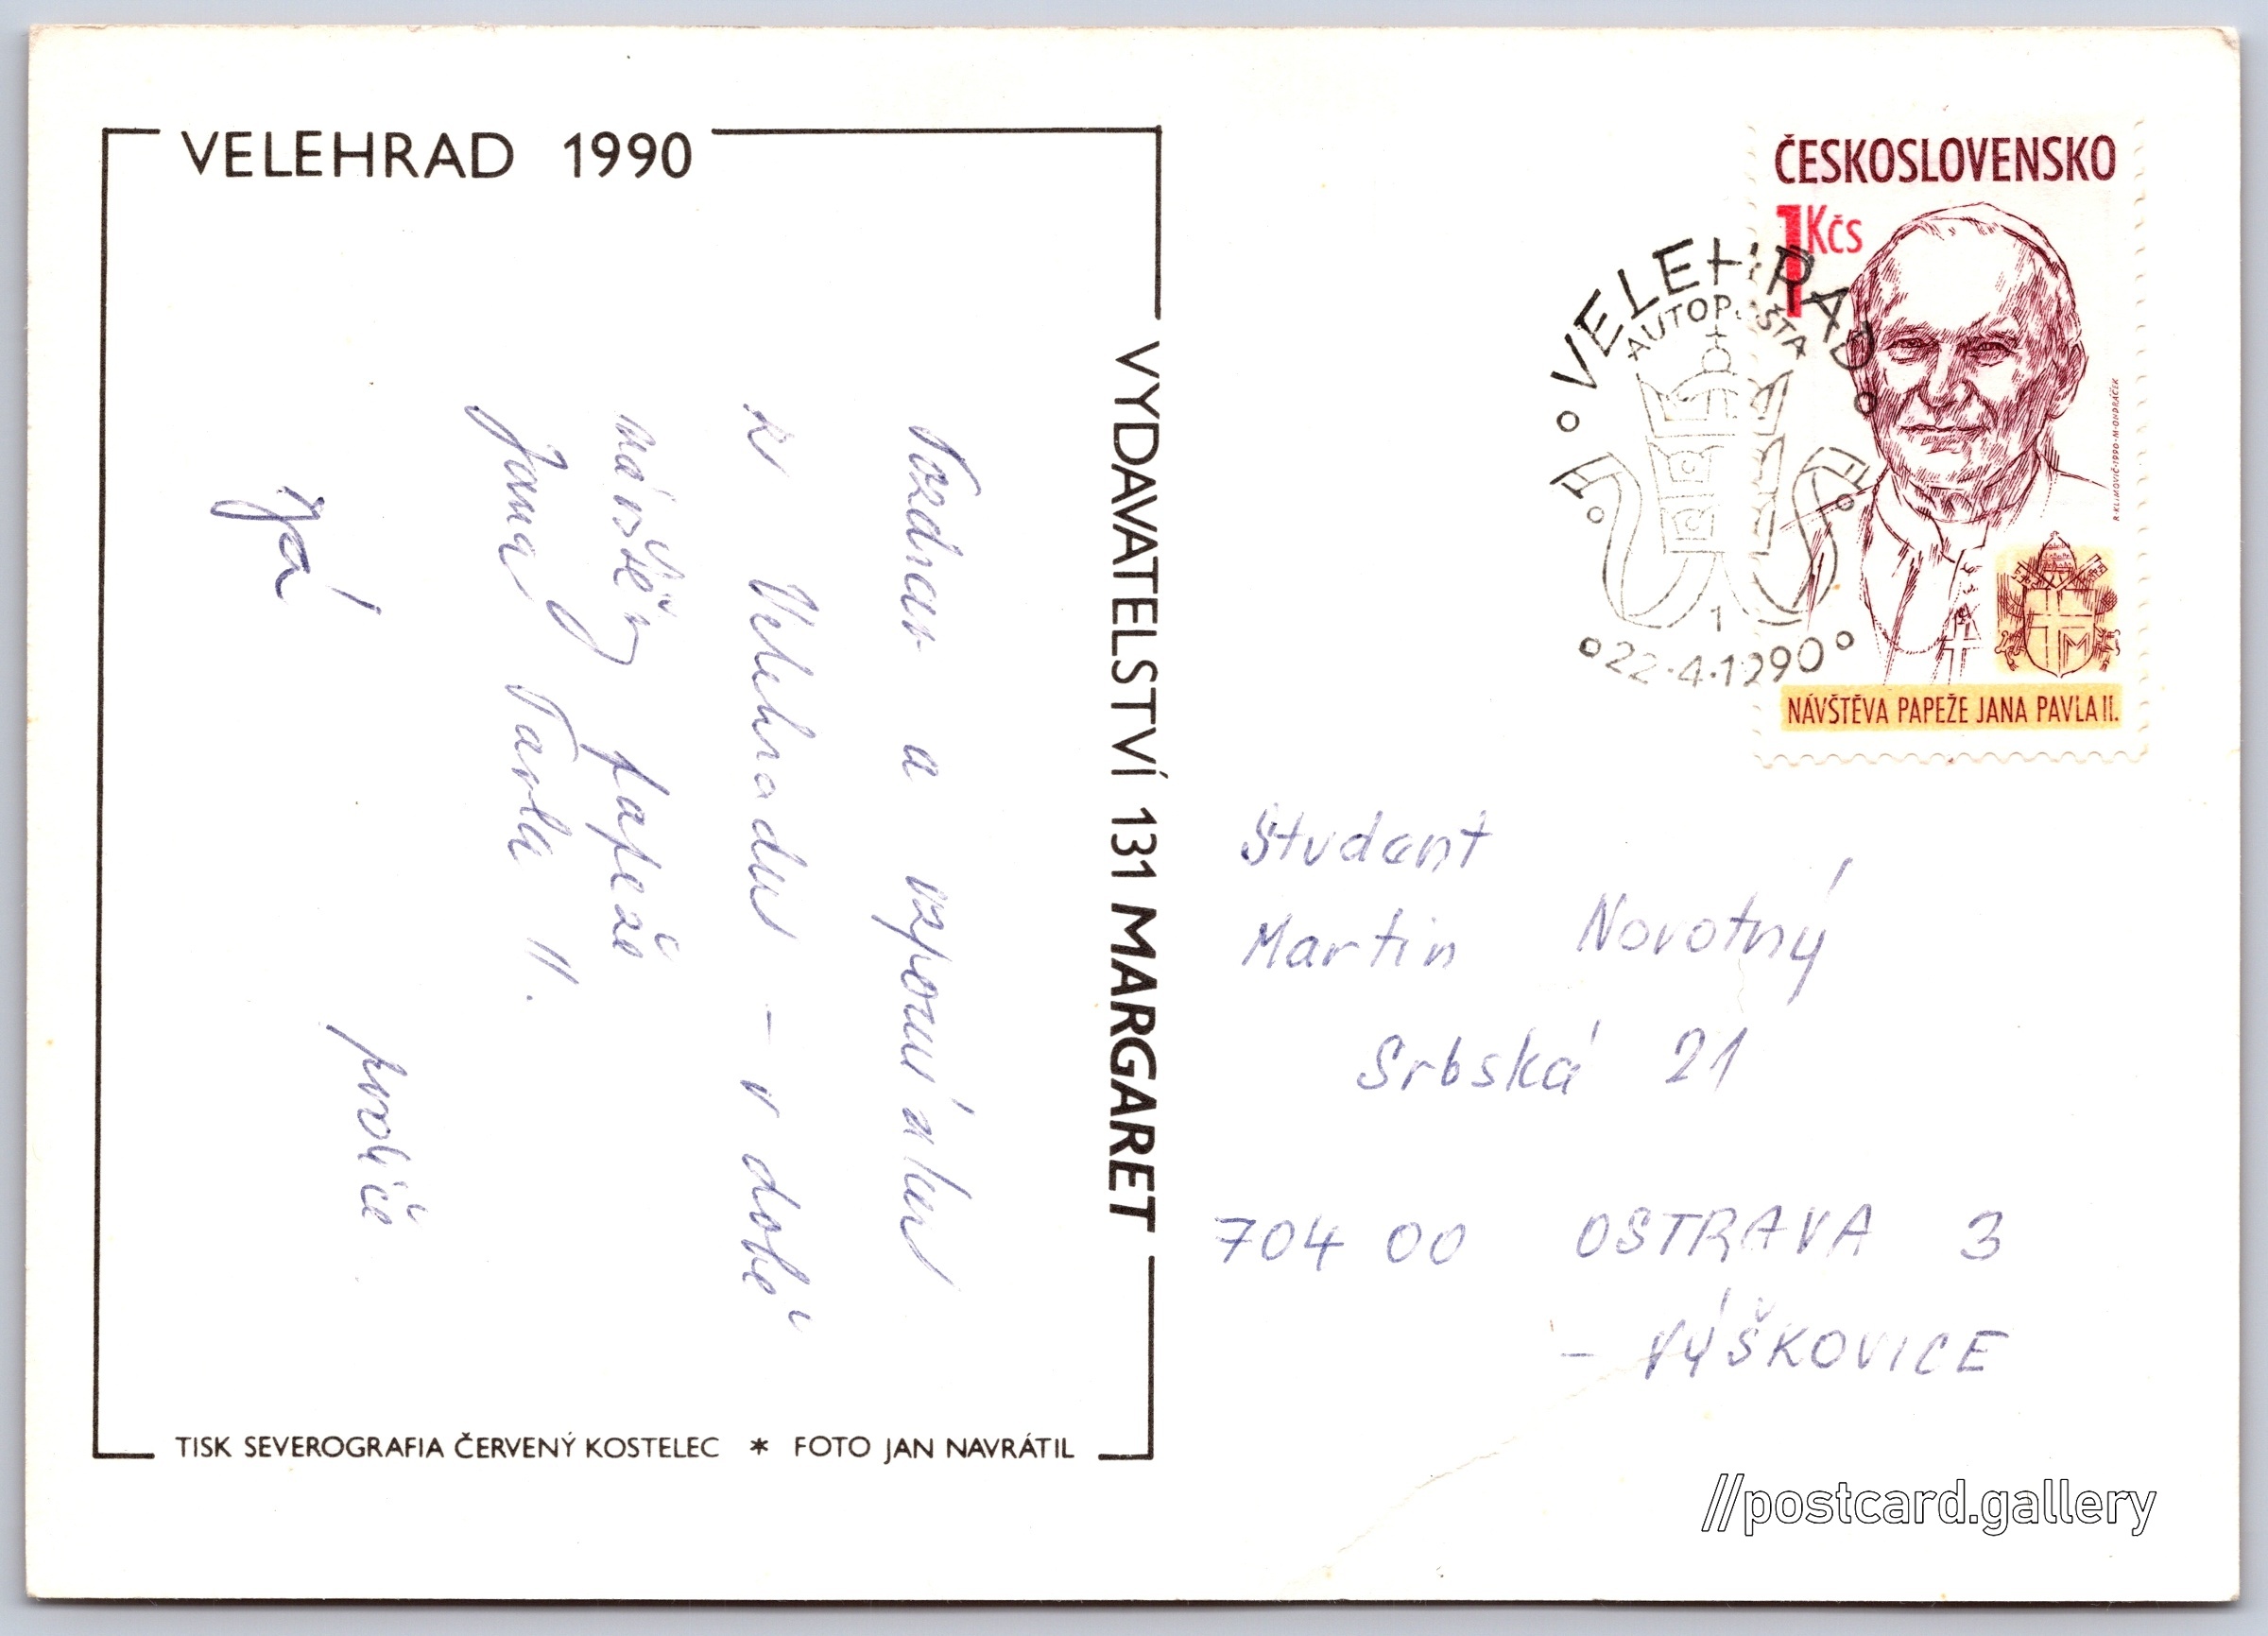 VELEHRAD 1990
Pozdrav a vzpomínku
z Velehradu - v době
návštěvy papeže
Jana Pavla II.
posílá
TISK SEVEROGRAFIA ČERVENÝ KOSTELEC * FOTO JAN NAVRÁTIL
VYDAVATELSTVÍ 131 MARGARET
ČESKOSLOVENSKO
1 Kčs
R. KLIMOVIČ · 1990 · M. ONDRÁČEK
NÁVŠTĚVA PAPEŽE JANA PAVLA II.
VELEHRAD
AUTOPOŠTA
1
22.4.1990
Student
Martin Novotný
Srbská 21
704 00 OSTRAVA 3
- VÝŠKOVICE
//postcard.gallery